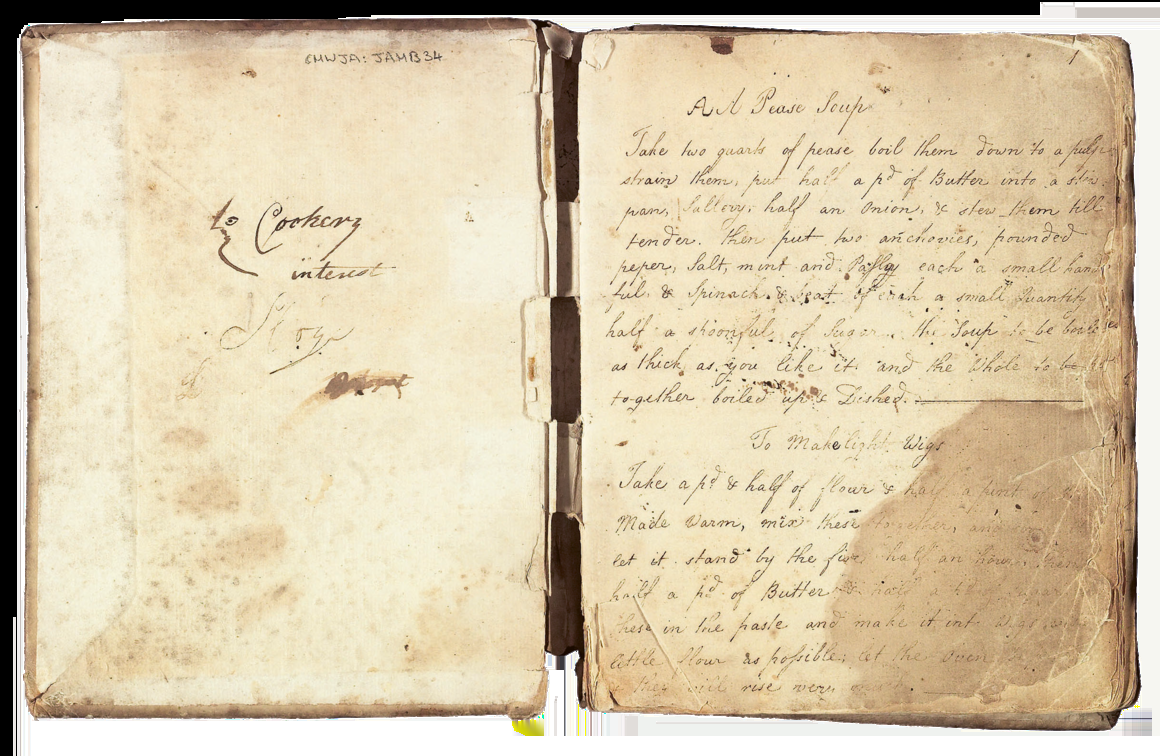 CMWJA: JAMB34
to Cookery
interest
1
A A Pease Soup
Take two quarts of pease boil them down to a pulp
strain them, put half a pd of Butter into a stew
pan, Sallery, half an Onion, & stew them till
tender. then put two anchovies, pounded
peper, Salt, mint and Pasly each a small hand
ful & Spinach & beat of each a small Quantity
half a spoonful of Sugar the Soup to be boiled
as thick as you like it and the Whole to be
together boiled up & Dished.
To Make light Wigs
Take a pd & half of flour & half a pint of
Made Warm, mix these together, and
let it stand by the fire half an hour then
half a pd of Butter & half a
these in the paste and make it int Wigs
little flour as possible, let the Oven
& they will rise very